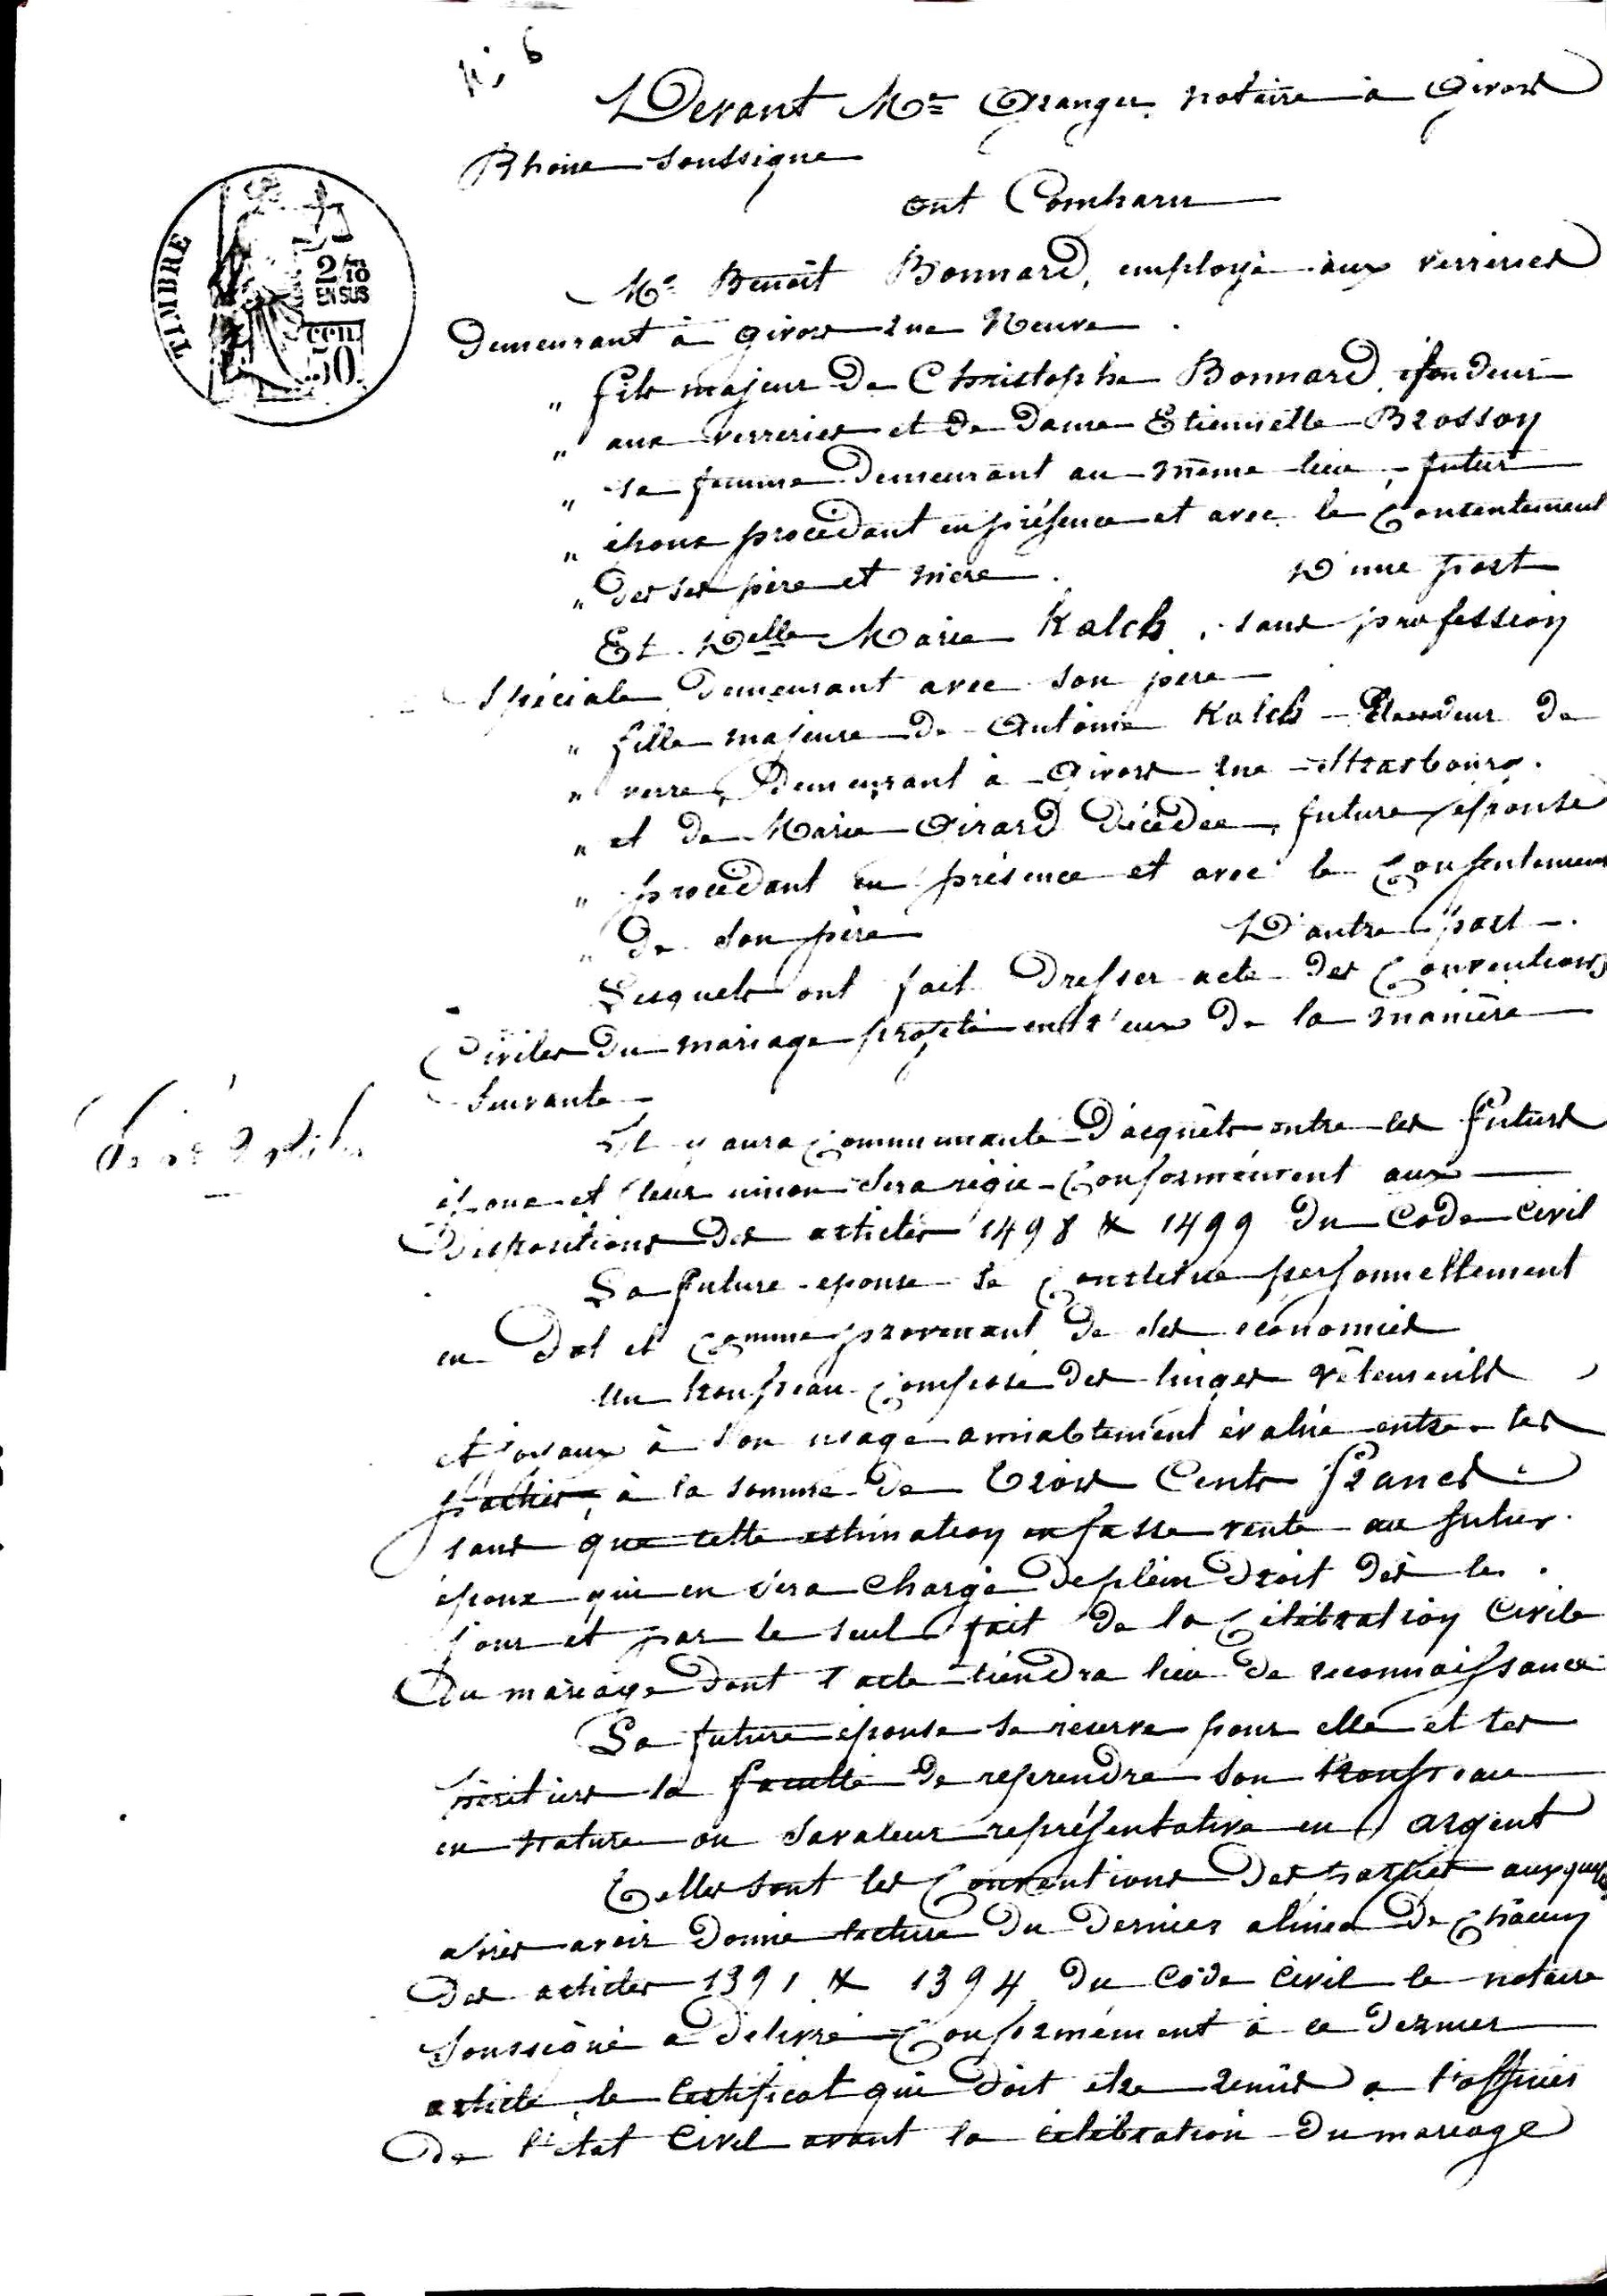 N° 6
Devant Me Granger notaire à Givors
Rhône soussigné
ont Comparu
Mr Benoit Bonnard, employé aux verreries
demeurant à Givors rue Neuve.
" fils majeur de Christophe Bonnard, fondeur
" aux verreries et de dame Etiennette Brosson
" sa femme demeurant au même lieu, futur
" époux procédant en présence et avec le consentement
" des ses père et mère. D'une part
Et Delle Marie Kalch, sans profession
spéciale demeurant avec son père
" fille majeure de Antoine Kalch Etendeur de
" verre, demeurant à Givors rue Strasbourg.
" et de Marie Girard décédée, future épouse
" procédant en présence et avec le consentement
" de son père D'autre part.
Lesquels ont fait dresser acte des conventions
civiles du mariage projeté entr'eux de la manière
suivante
Il y aura communauté d'acquêts entre les futurs
époux et leur union sera régie conformément aux
dispositions des articles 1498 & 1499 du Code Civil
La future épouse se constitue personnellement
en dot et comme provenant de ses économies
un trousseau composé des linges vêtements
et joyaux à son usage amiablement évalué entre les
parties à la somme de Trois Cents francs
sans que cette estimation en fasse vente au futur
époux qui en sera chargé de plein droit dès le
jour et par le seul fait de la célébration civile
du mariage dont l'acte tiendra lieu de reconnaissance
La future épouse se réserve pour elle et ses
héritiers la faculté de reprendre son trousseau
en nature ou sa valeur représentative en argent
Telles sont les conventions des parties auxquelles
après avoir donné lecture du dernier alinéa de chacun
des articles 1391 & 1394 du Code Civil le notaire
soussigné a délivré conformément à ce dernier
article le certificat qui doit etre remis a l'officier
de l'état Civil avant la célébration du mariage
TIMBRE
2/10
EN SUS
cen.
50